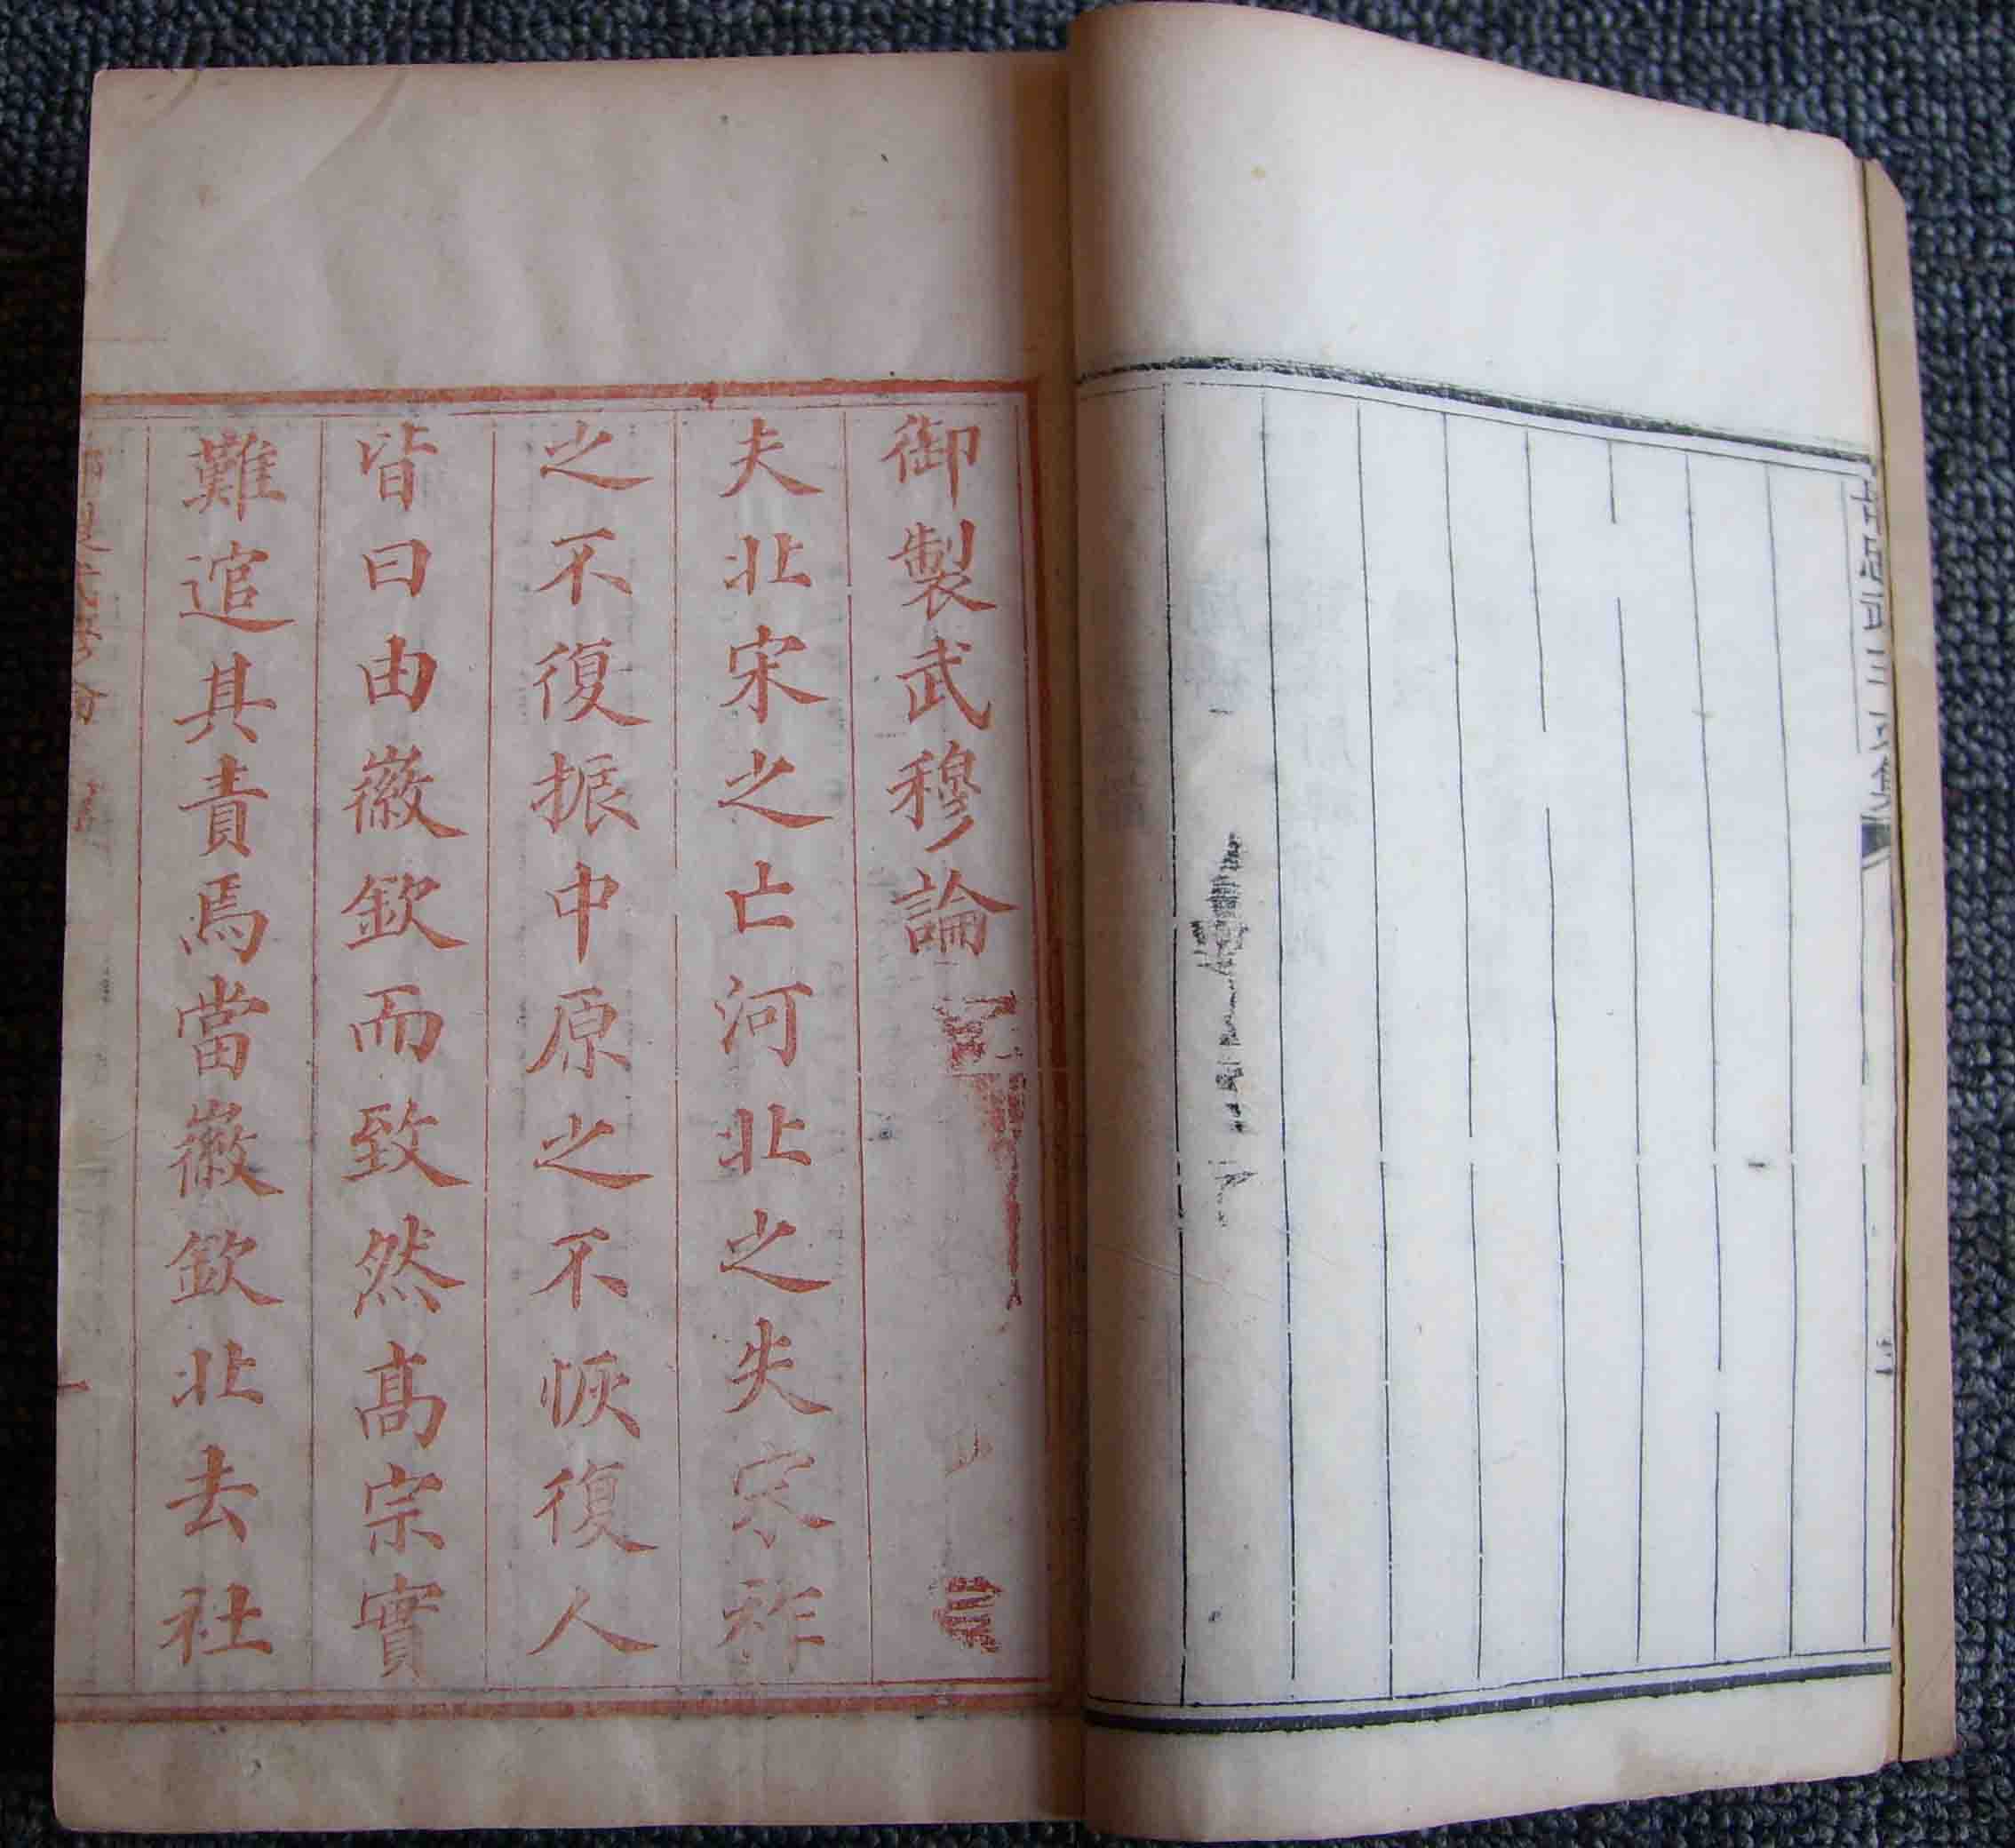 岳忠武王文集
御製武穆論
夫北宋之亡河北之失宋祚
之不復振中原之不恢復人
皆曰由徽欽而致然髙宗實
難逭其責焉當徽欽北去社